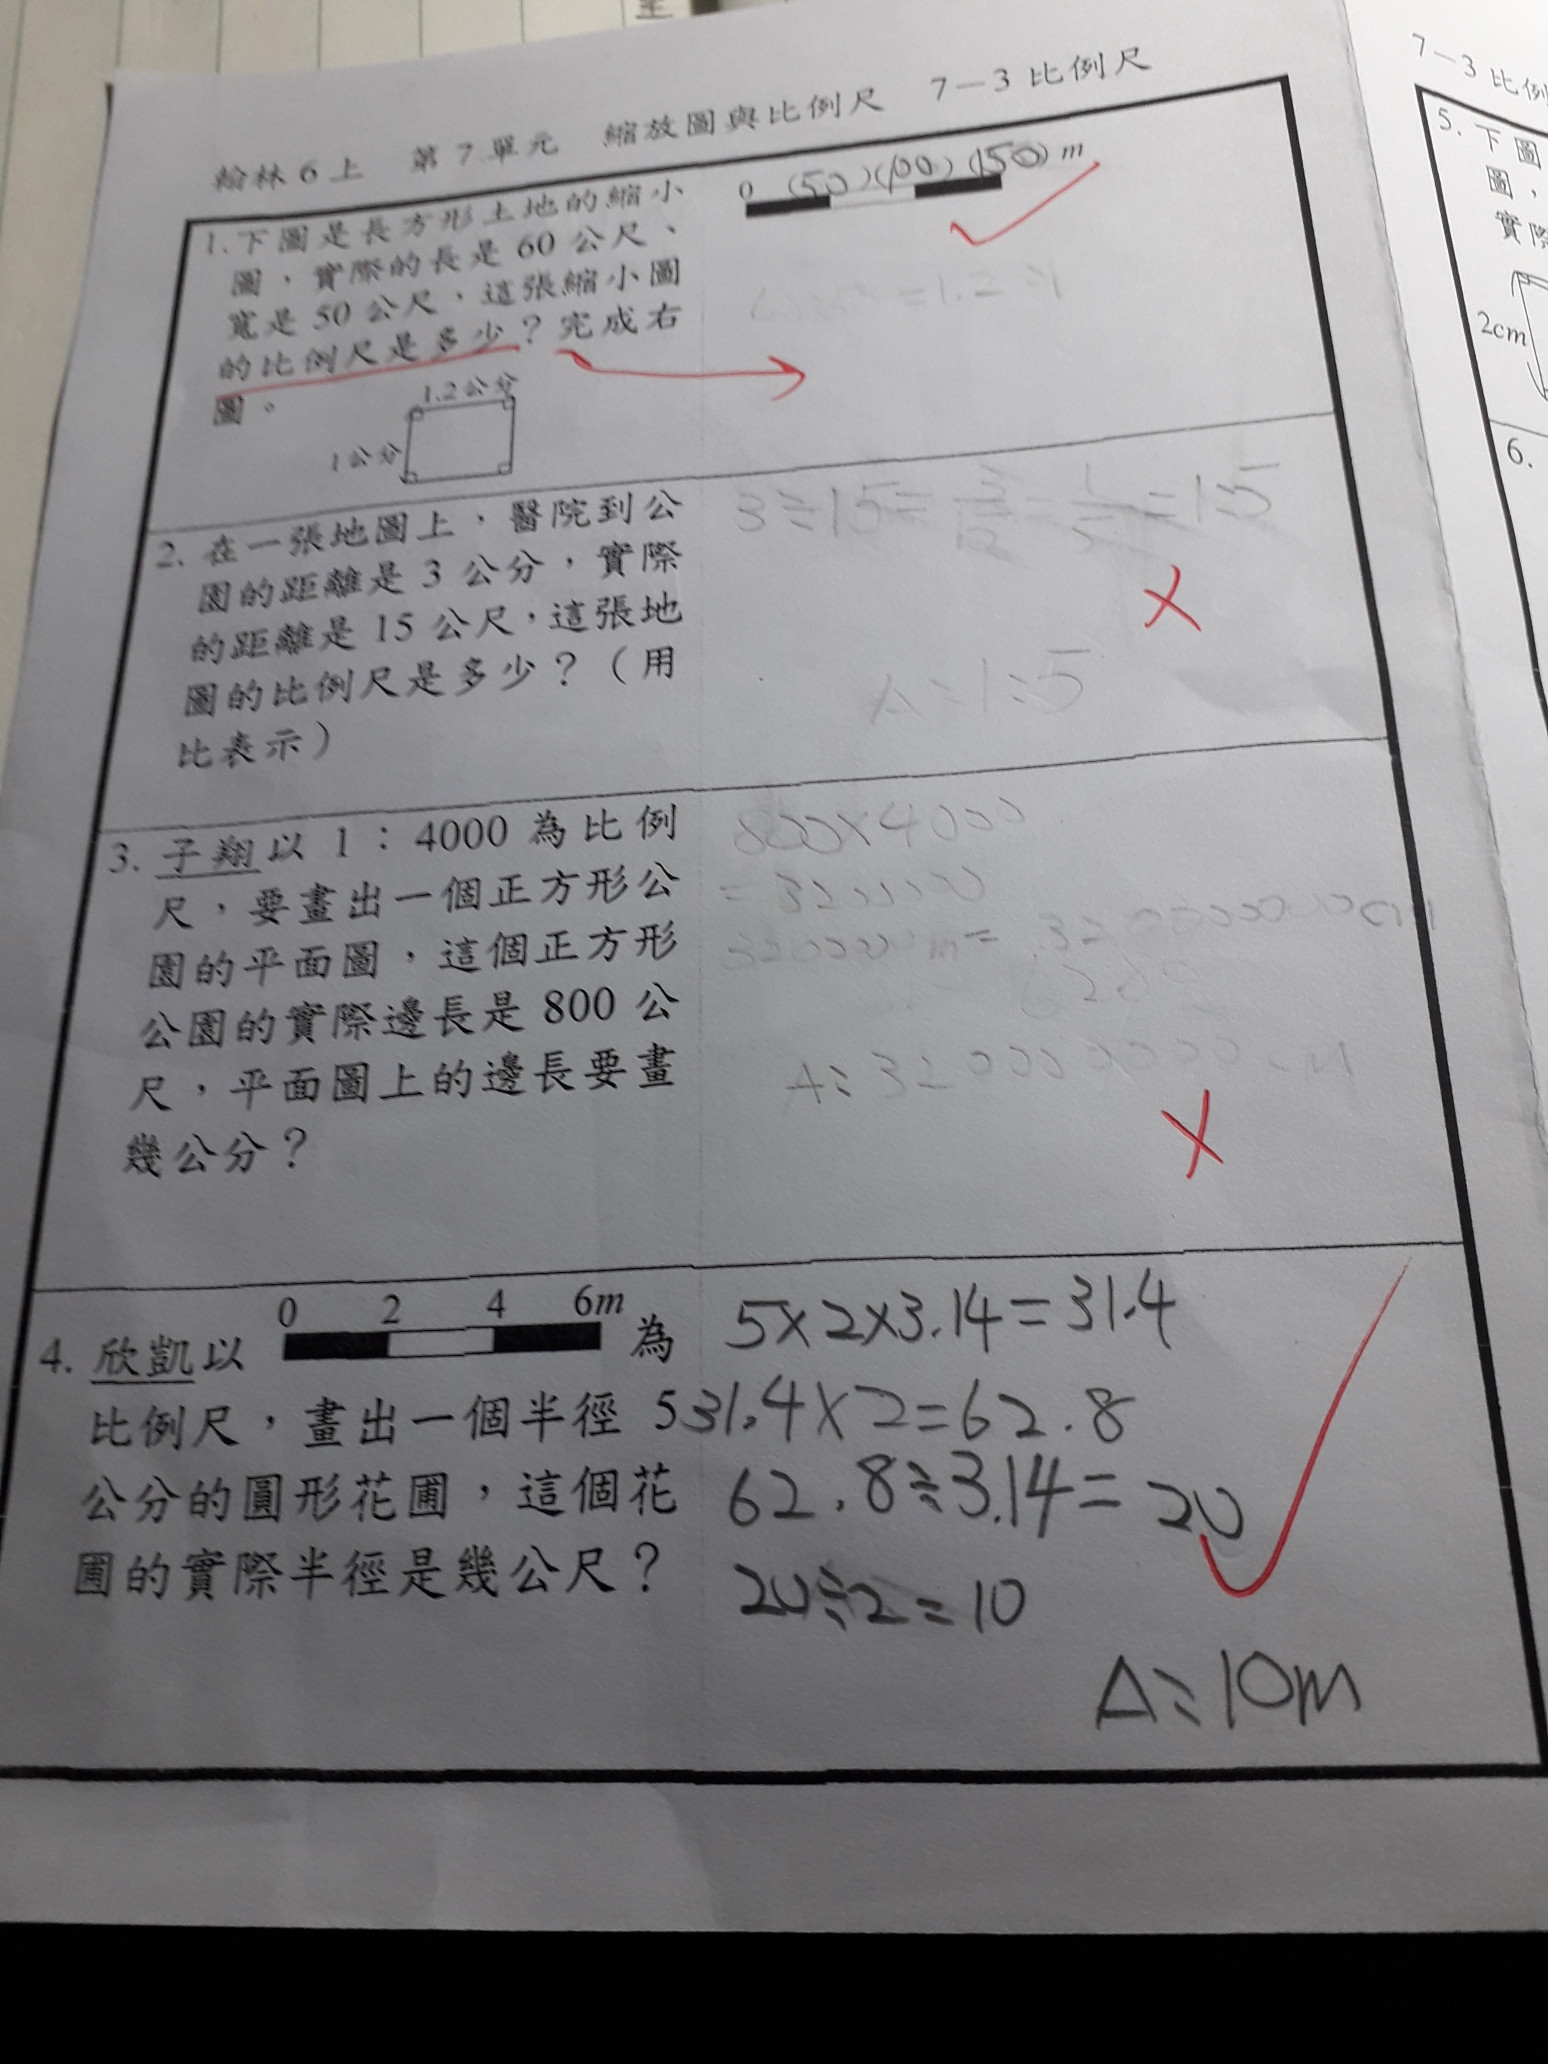 翰林6上 第7單元 縮放圖與比例尺 7－3 比例尺
1.下圖是長方形土地的縮小
圖，實際的長是60公尺、
寬是50公尺，這張縮小圖
的比例尺是多少？完成右
圖。
1.2公分
1公分
0 (50)(100)(150) m
=1.2:1
2. 在一張地圖上，醫院到公
園的距離是3公分，實際
的距離是15公尺，這張地
圖的比例尺是多少？（用
比表示）
3÷15=
=1:5
A:1:5
3. 子翔以 1：4000 為比例
尺，要畫出一個正方形公
園的平面圖，這個正方形
公園的實際邊長是800公
尺，平面圖上的邊長要畫
幾公分？
800×4000
0 2 4 6m
4. 欣凱以 為
比例尺，畫出一個半徑 5
公分的圓形花圃，這個花
圃的實際半徑是幾公尺？
5×2×3.14=31.4
31.4×2=62.8
62.8÷3.14=20
20÷2=10
A:10m
7－3 比例
5. 下圖
圖，
實際
2cm
6.